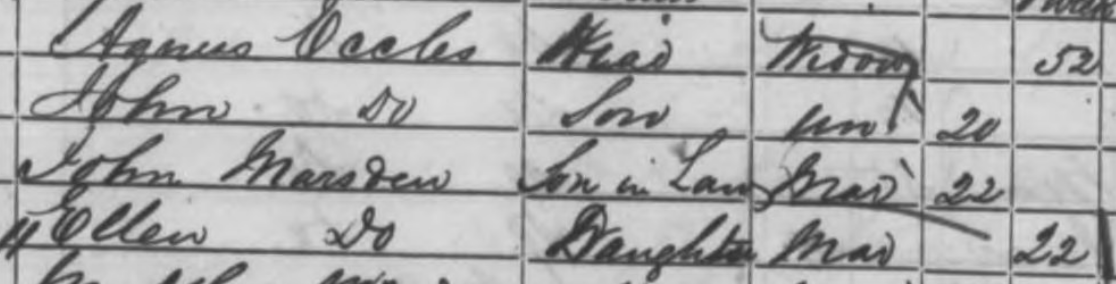 Agnus Eccles Head Widow 52
John Do Son Un 20
John Marsden Son in Law Mar 22
Ellen Do Daughter Mar 22